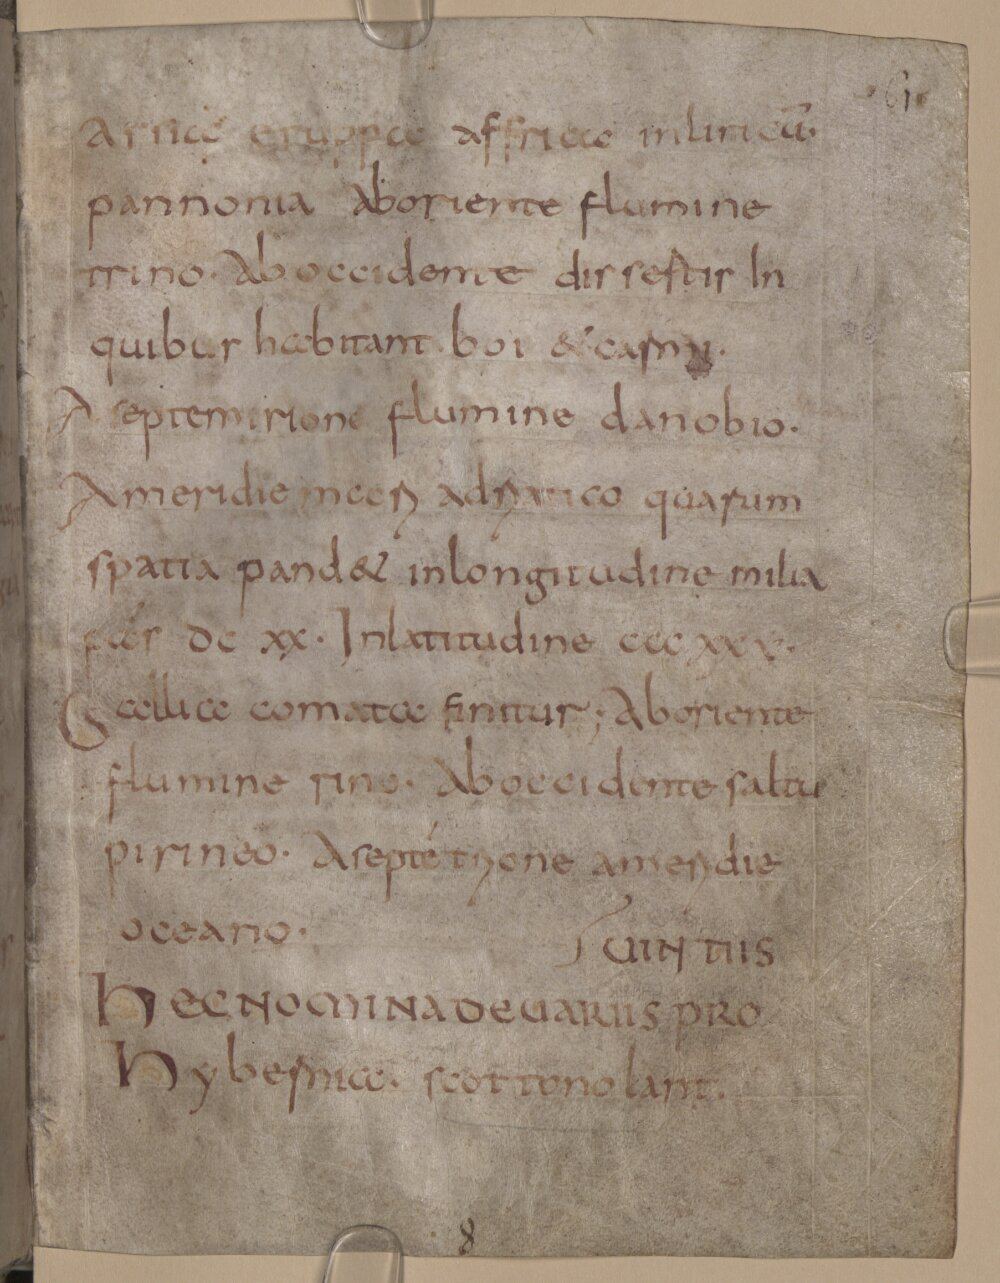 61
Asiae eruppae affricae inliricū·
pannonia Aboriente flumine
trino· Aboccidente dissestis In
quibus habitant boi &
A septemtrione flumine danobio·
Ameridie mari adriatico quarum
spatia pand& inlongitudine milia
DC XX· Inlatitudine CCC XXX·
Galliae comatae finitur; Aboriente
flumine rino· Aboccidente saltu
pirineo· Aseptētrione ameridie
oceano·
UINTUS
HEC NOMINA DE UARIIS PRO
Hyberniae· scottonolant·
8